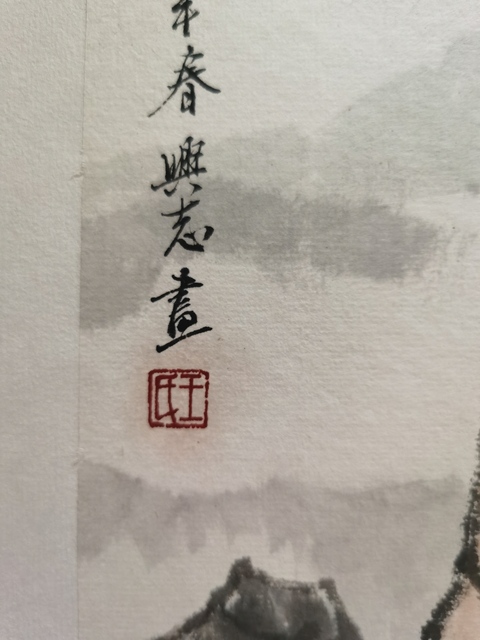 年春興志畫
王氏